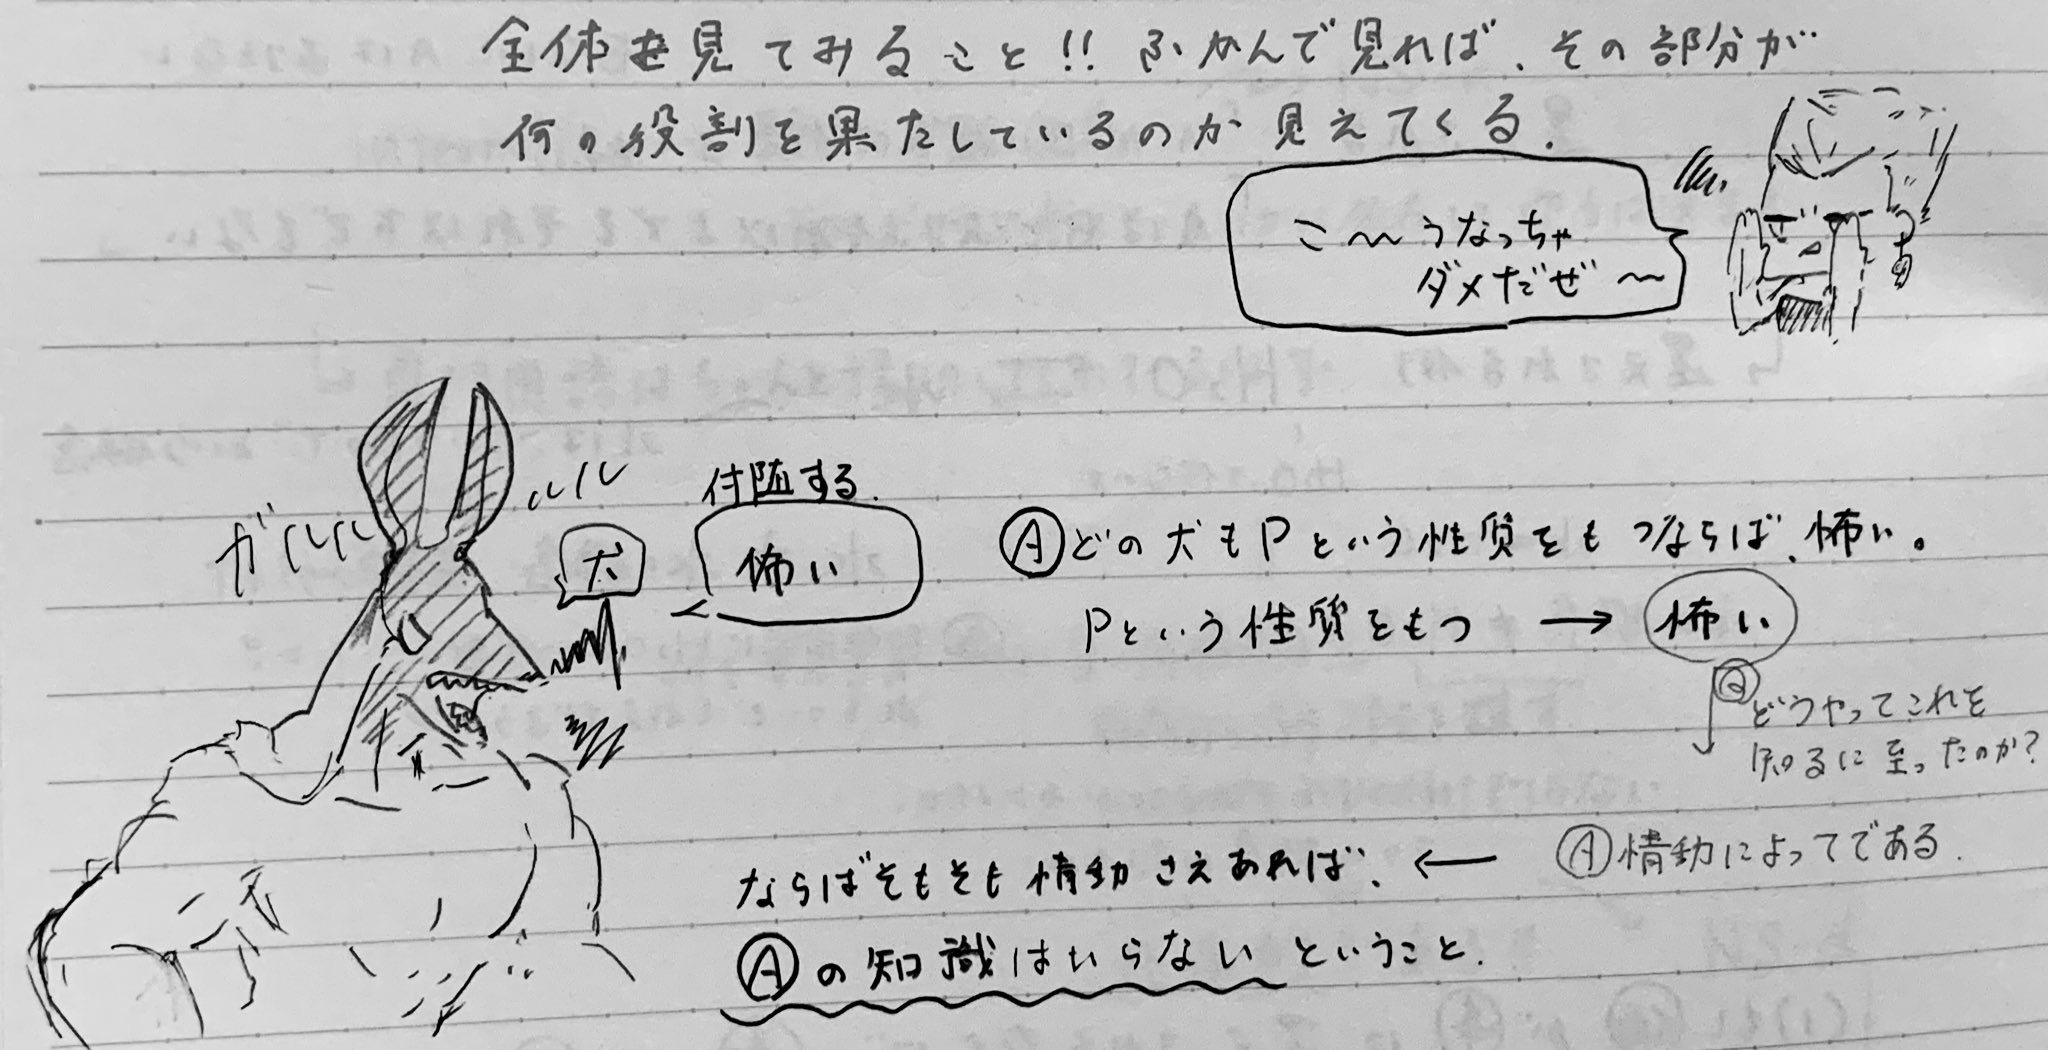 全体を見てみること!! ふかんで見れば、その部分が
何の役割を果たしているのか見えてくる.
こ〜うなっちゃ
ダメだぜ〜
ガルルル
ルル
犬
付随する.
怖い
Ⓐどの犬もPという性質をもつならば、怖い。
Pという性質をもつ → 怖い
Ⓠどうやってこれを
知るに至ったのか?
Ⓐ情動によってである.
ならばそもそも情動さえあれば、←
Ⓐの知識はいらないということ.